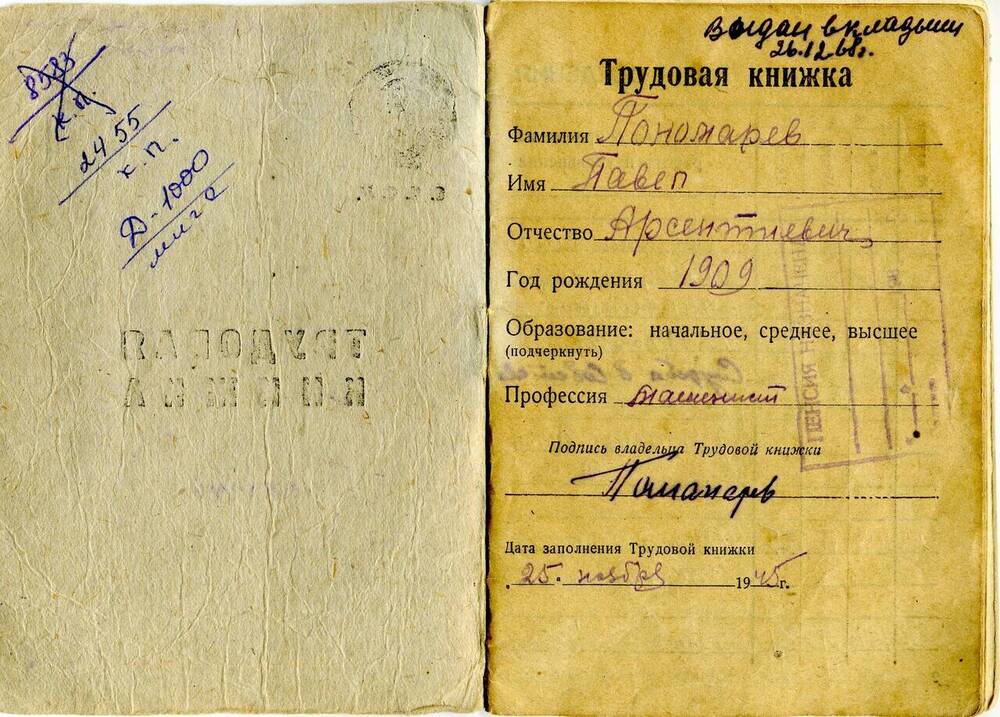 8583
(к.п.)
2455
к.п.
Д-1000
С.С.С.Р.
ТРУДОВАЯ
КНИЖКА
Выдан вкладыш
26.12.68г.
Трудовая книжка
Фамилия Пономарев
Имя Павел
Отчество Арсентиевич
Год рождения 1909
Образование: начальное, среднее, высшее
(подчеркнуть)
Профессия
Подпись владельца Трудовой книжки
Дата заполнения Трудовой книжки
25. ноября 1945г.
ПЕНСИЯ НАЗНАЧЕНА